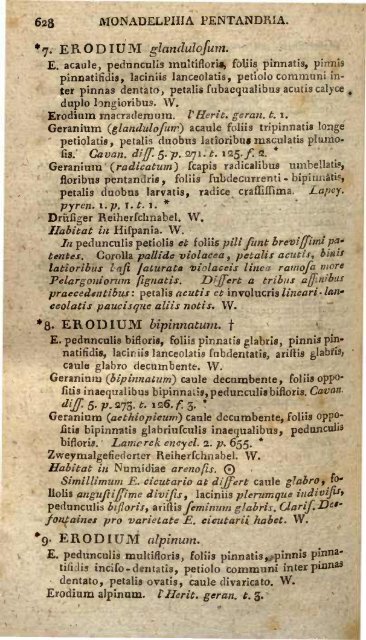 628 MONADELPHIA PENTANDRIA.
*7. ERODIUM glanduloſum.
E. acaule, pedunculis multifloris, foliis pinnatis, pinnis
pinnatifidis, laciniis lanceolatis, petiolo communi in-
ter pinnas dentato, petalis ſubaequalibus acutis calyce
duplo longioribus. W.
Erodium macradenum. l'Herit. geran. t. 1.
Geranium (glanduloſum) acaule foliis tripinnatis longe
petiolatis, petalis duobus latioribus maculatis plumo-
ſis. Cavan. diſſ. 5. p. 271. t. 125. f. 2. *
Geranium (radicatum) ſcapis radicalibus umbellatis,
floribus pentandris, foliis ſubdecurrenti-bipinnatis,
petalis duobus larvatis, radice craſſiſſima. Lapey.
pyren. 1. p. 1. t. 1. *
Drüſiger Reiherſchnabel. W.
Habitat in Hiſpania. W.
In pedunculis petiolis et foliis pili ſunt breviſſimi pa-
tentes. Corolla pallide violacea, petalis acutis, binis
latioribus baſi ſaturata violaceis linea ramoſa more
Pelargoniorum ſignatis. Differt a tribus affinibus
praecedentibus: petalis acutis et involucris lineari-lan-
ceolatis paucisque aliis notis. W.
*8. ERODIUM bipinnatum. †
E. pedunculis bifloris, foliis pinnatis glabris, pinnis pin-
natifidis, laciniis lanceolatis ſubdentatis, ariſtis glabris,
caule glabro decumbente. W.
Geranium (bipinnatum) caule decumbente, foliis oppo-
ſitis inaequalibus bipinnatis, pedunculis bifloris. Cavan.
diſſ. 5. p. 273. t. 126. f. 3. *
Geranium (aethiopicum) caule decumbente, foliis oppo-
ſitis bipinnatis glabriuſculis inaequalibus, pedunculis
bifloris. Lamerck encycl. 2. p. 655. *
Zweymalgefiederter Reiherſchnabel. W.
Habitat in Numidiae arenoſis. ☉
Simillimum E. cicutario at differt caule glabro, fo-
liolis anguſtiſſime diviſis, laciniis plerumque indiviſis,
pedunculis bifloris, ariſtis ſeminum glabris. Clariſ. Des-
fontaines pro varietate E. cicutarii habet. W.
*9. ERODIUM alpinum.
E. pedunculis multifloris, foliis pinnatis, pinnis pinna-
tifidis inciſo-dentatis, petiolo communi inter pinnas
dentato, petalis ovatis, caule divaricato. W.
Erodium alpinum. l'Herit. geran. t. 3.